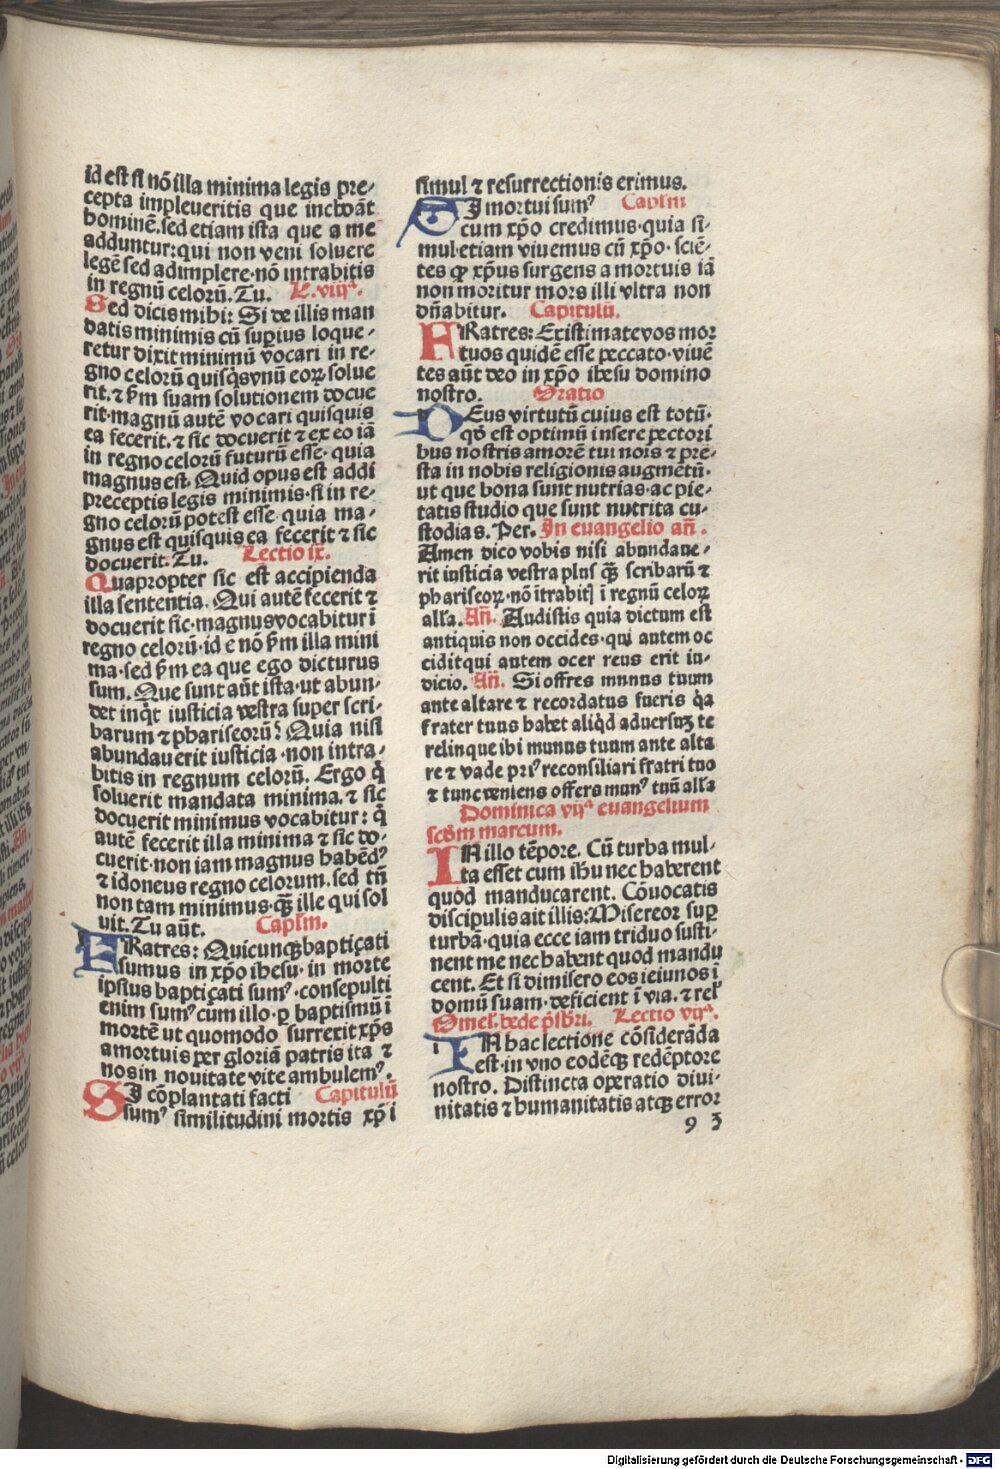 id est si nō illa minima legis pre-
cepta impleueritis que inchoāt
hominē. sed etiam ista que a me
adduntur: qui non veni soluere
legē sed adimplere· nō intrabitis
in regnū celorū. Tu. L. viijª.
Sed dicis mihi: Si de illis man
datis minimis cū supius loque-
retur dixit minimū vocari in re-
gno celorū quisq̄s vnū eoꝝ solue
rit. ⁊ ẜm suam solutionem docue
rit· magnū autē vocari quisquis
ea fecerit. ⁊ sic docuerit ⁊ ex eo iā
in regno celorū futurū esse· quia
magnus est. Quid opus est addi
preceptis legis minimis· si in re-
gno celorū potest esse· quia ma-
gnus est quisquis ea fecerit ⁊ sic
docuerit. Tu. Lectio ix.
Quapropter sic est accipienda
illa sententia. Qui autē fecerit ⁊
docuerit sic· magnus vocabitur ī
regno celorū· id ē nō ẜm illa mini
ma· sed ẜm ea que ego dicturus
sum. Que sunt aūt ista· ut abun-
det inq̄t iusticia vestra super scri-
barum ⁊ phariseorū? Quia nisi
abundauerit iusticia· non intra-
bitis in regnum celorū. Ergo q̄
soluerit mandata minima. ⁊ sic
docuerit minimus vocabitur: q̄
autē fecerit illa minima ⁊ sic do-
cuerit· non iam magnus habēdꝰ
⁊ idoneus regno celorum. sed tn̄
non tam minimus· qꝫ ille qui sol
uit. Tu aūt. Capl'm.
FRatres: Quicunqꝫ baptiçati
sumus in xp̄o ihesu· in morte
ipsius baptiçati sumꝰ· consepulti
enim sumꝰ cum illo· ꝑ baptismū ī
mortē ut quomodo surrexit xp̄s
a mortuis per gloriā patris ita ⁊
nos in nouitate vite ambulemꝰ.
SI cōplantati facti Capitulū
sumꝰ similitudini mortis xp̄i
simul ⁊ resurrectionis erimus.
SI mortui sumꝰ Capl'm
cum xp̄o credimus· quia si-
mul etiam viuemus cū xp̄o· sciē-
tes ꝙ xp̄us surgens a mortuis iā
non moritur mors illi vltra non
dn̄abitur. Capitulū.
FRatres: Existimate vos mor
tuos quidē esse peccato· viuē
tes aūt deo in xp̄o ihesu domino
nostro. Oratio
DEus virtutū cuius est totū·
qd̄ est optimū insere pectori
bus nostris amorē tui nois ⁊ pre-
sta in nobis religionis augmētū·
ut que bona sunt nutrias· ac pie-
tatis studio que sunt nutrita cu-
stodias. Per. In euangelio an̄.
Amen dico vobis nisi abundaue-
rit iusticia vestra plus qꝫ scribarū ⁊
phariseoꝝ· nō ītrabitꝭ ī regnū celoꝝ
all'a. An̄. Audistis quia dictum est
antiquis non occides· qui autem oc
cidit qui autem ocer reus erit iu-
dicio. An̄. Si offres munus tuum
ante altare ⁊ recordatus fueris q̄a
frater tuus habet aliq̄d aduersuꝫ te
relinque ibi munus tuum ante alta
re ⁊ vade priꝰ reconsiliari fratri tuo
⁊ tunc veniens offers munꝰ tuū all'a
Dominica vijª euangelium
scd̄m marcum.
IN illo tēpore. Cū turba mul-
ta esset cum ihū nec haberent
quod manducarent. Cōuocatis
discipulis ait illis: Misereor sup
turbā· quia ecce iam triduo susti-
nent me nec habent quod mandu
cent. Et si dimisero eos ieiunos ī
domū suam· deficient ī via. ⁊ rel'
Omel'. bede p̄sbri. Lectio vijª.
IN hac lectione cōsiderāda
est· in vno eodēqꝫ redēptore
nostro. Distincta operatio diui-
nitatis ⁊ humanitatis atqꝫ error
9 3
Digitalisierung gefördert durch die Deutsche Forschungsgemeinschaft - DFG